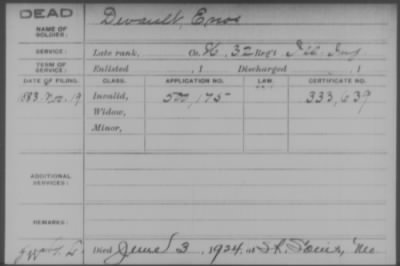 DEAD
NAME OF SOLDIER:
Devault, Enos
SERVICE:
Late rank, Co. 32 Reg't Ill. Inf
TERM OF SERVICE:
Enlisted , 1 Discharged , 1
DATE OF FILING. CLASS. APPLICATION NO. LAW. CERTIFICATE NO.
1883 Nov. 19 Invalid, 500,175 333,639
Widow,
Minor,
ADDITIONAL SERVICES:
REMARKS:
Died June 3, 1924, at St. Louis, Mo